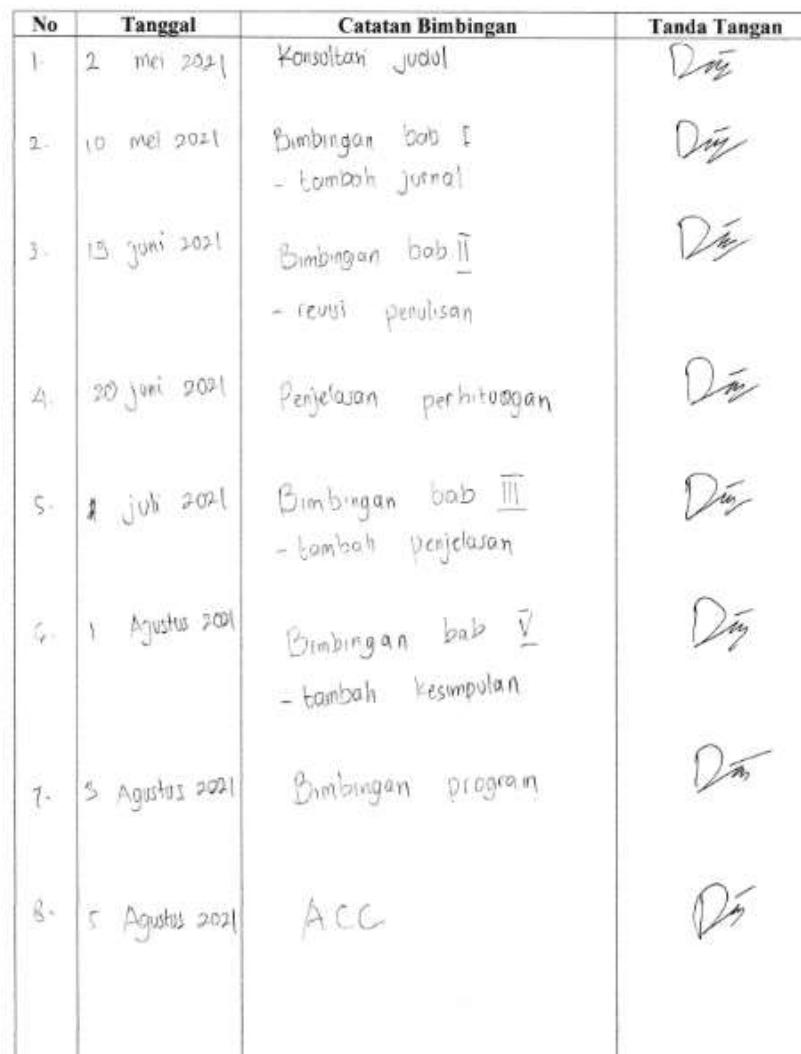 No Tanggal Catatan Bimbingan Tanda Tangan
1. 2 mei 2021 Konsultasi judul
2. 10 mei 2021 Bimbingan bab I
- tambah jurnal
3. 15 juni 2021 Bimbingan bab II
- revisi penulisan
4. 20 juni 2021 Penjelasan perhitungan
5. juli 2021 Bimbingan bab III
- tambah penjelasan
6. 1 Agustus 2021 Bimbingan bab V
- tambah kesimpulan
7. 3 Agustus 2021 Bimbingan program
8. 5 Agustus 2021 ACC